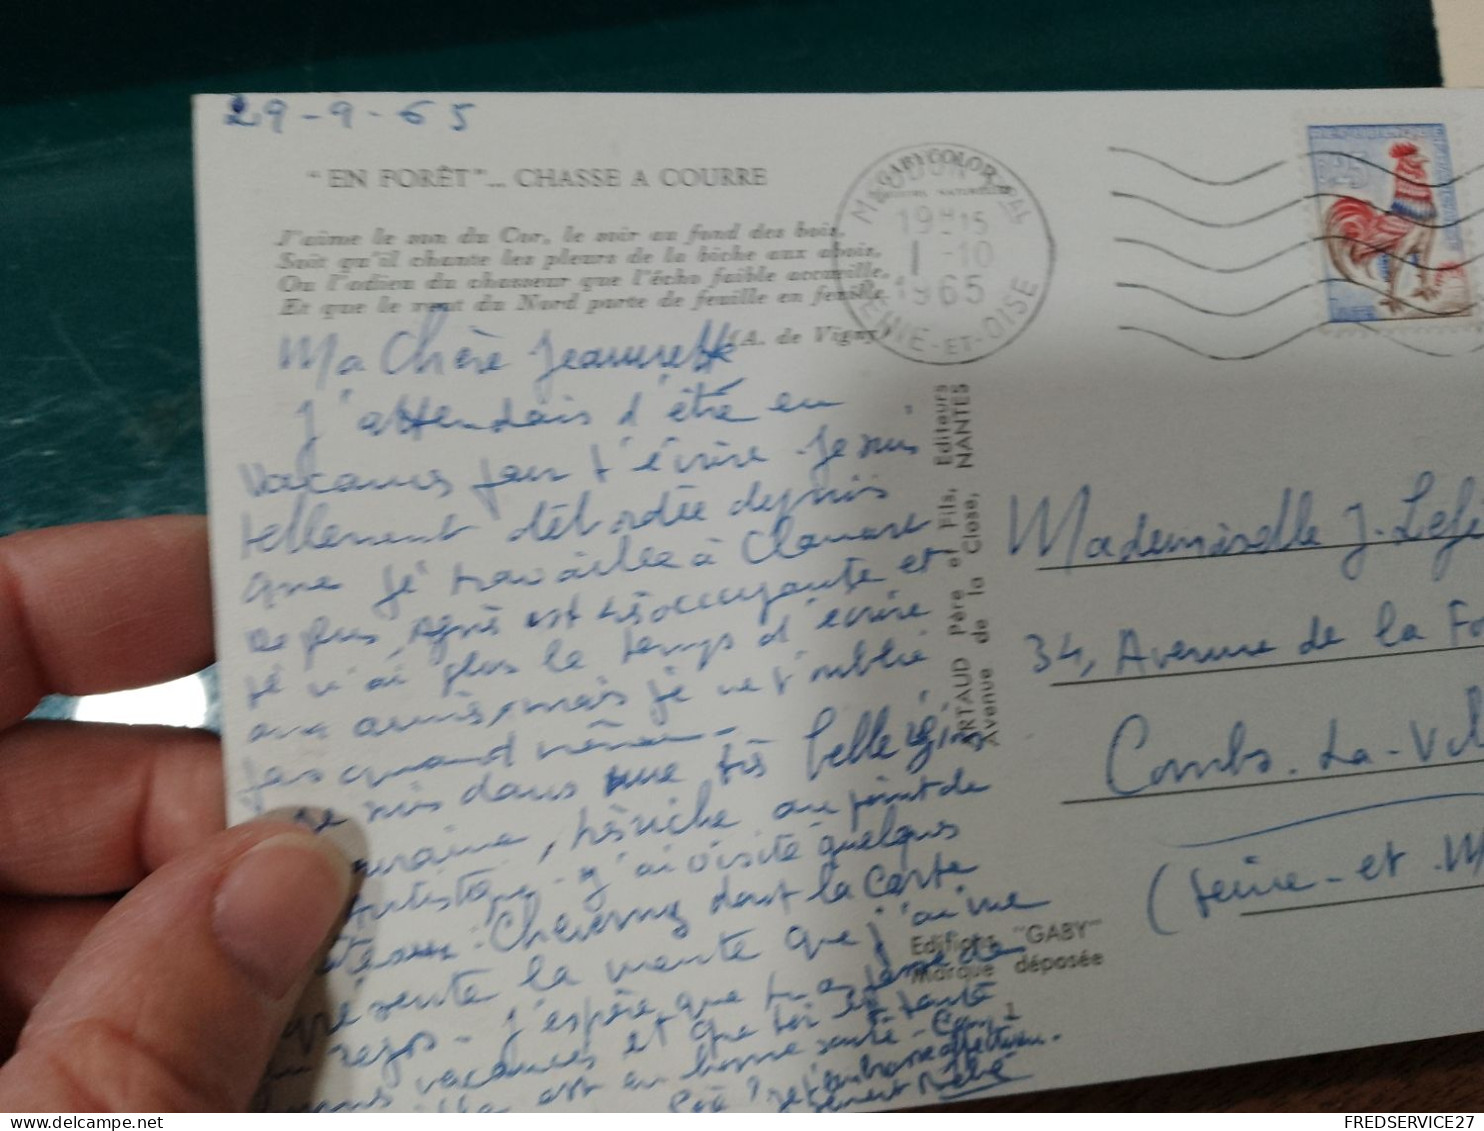 29-9-65
"EN FORÊT"... CHASSE A COURRE
J'aime le son du Cor, le soir au fond des bois,
Soit qu'il chante les pleurs de la biche aux abois,
Ou l'adieu du chasseur que l'écho faible accueille,
Et que le vent du Nord porte de feuille en feuille.
(A. de Vigny)
GABYCOLOR
MEUDON
19H15
1-10
1965
SEINE-ET-OISE
Ma Chère Jeannette
J'attendais d'être en
vacances pour t'écrire. Je suis
tellement débordée depuis
que je travaille à Clamart
de plus, Agnès est très occupante et
je n'ai plus le temps d'écrire
aux amis, mais je ne t'oublie
pas quand même.
Je suis dans une très belle région
, très riche au point de
J'ai visité quelques
Cheverny dont la Carte
la meute que j'ai vue
J'espère que tu as passé de
vacances et que toi et
est en bonne santé
t'embrasse affectueu-
sement
ARTAUD Père & Fils, Editeurs
Avenue de la Close, NANTES
Editions "GABY"
Marque déposée
0,25
Mademoiselle J. Lefe
34, Avenue de la Fo
Combs-La-Vil
(Seine-et-M
FREDSERVICE27